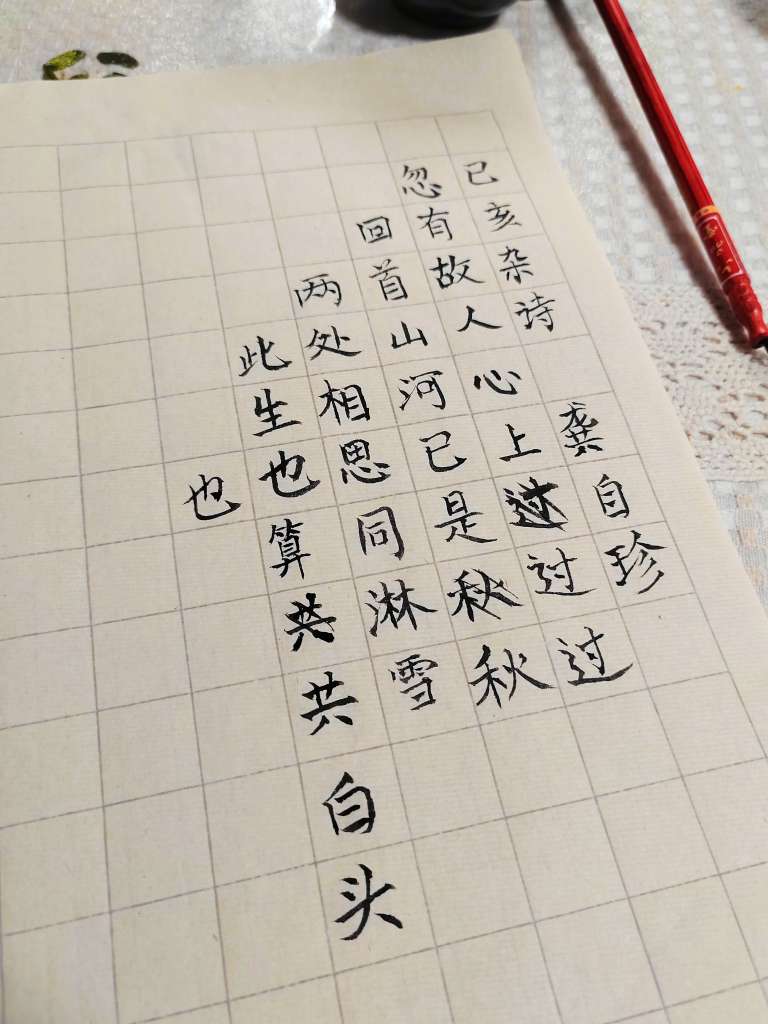 已亥杂诗 龚自珍
忽有故人心上过过过
回首山河已是秋秋
两处相思同淋雪
此生也算共共白头
也